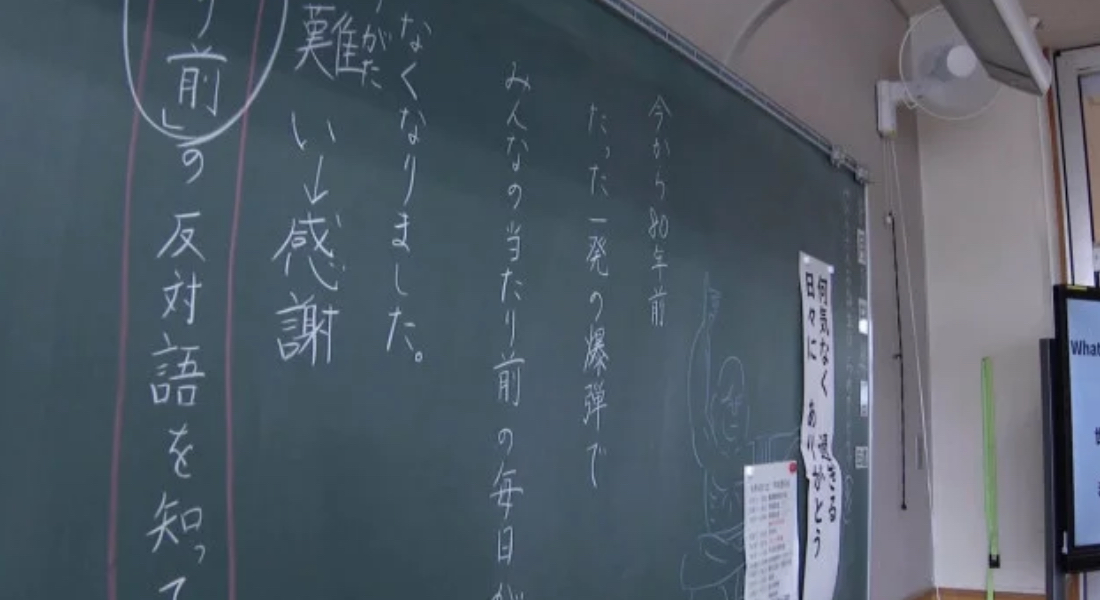 何気なく 過ぎる
日々に ありがとう
今から80年前
たった一発の爆弾で
みんなの当たり前の毎日が
なくなりました。
がた
難い→感謝
り前」の反対語を知って
What